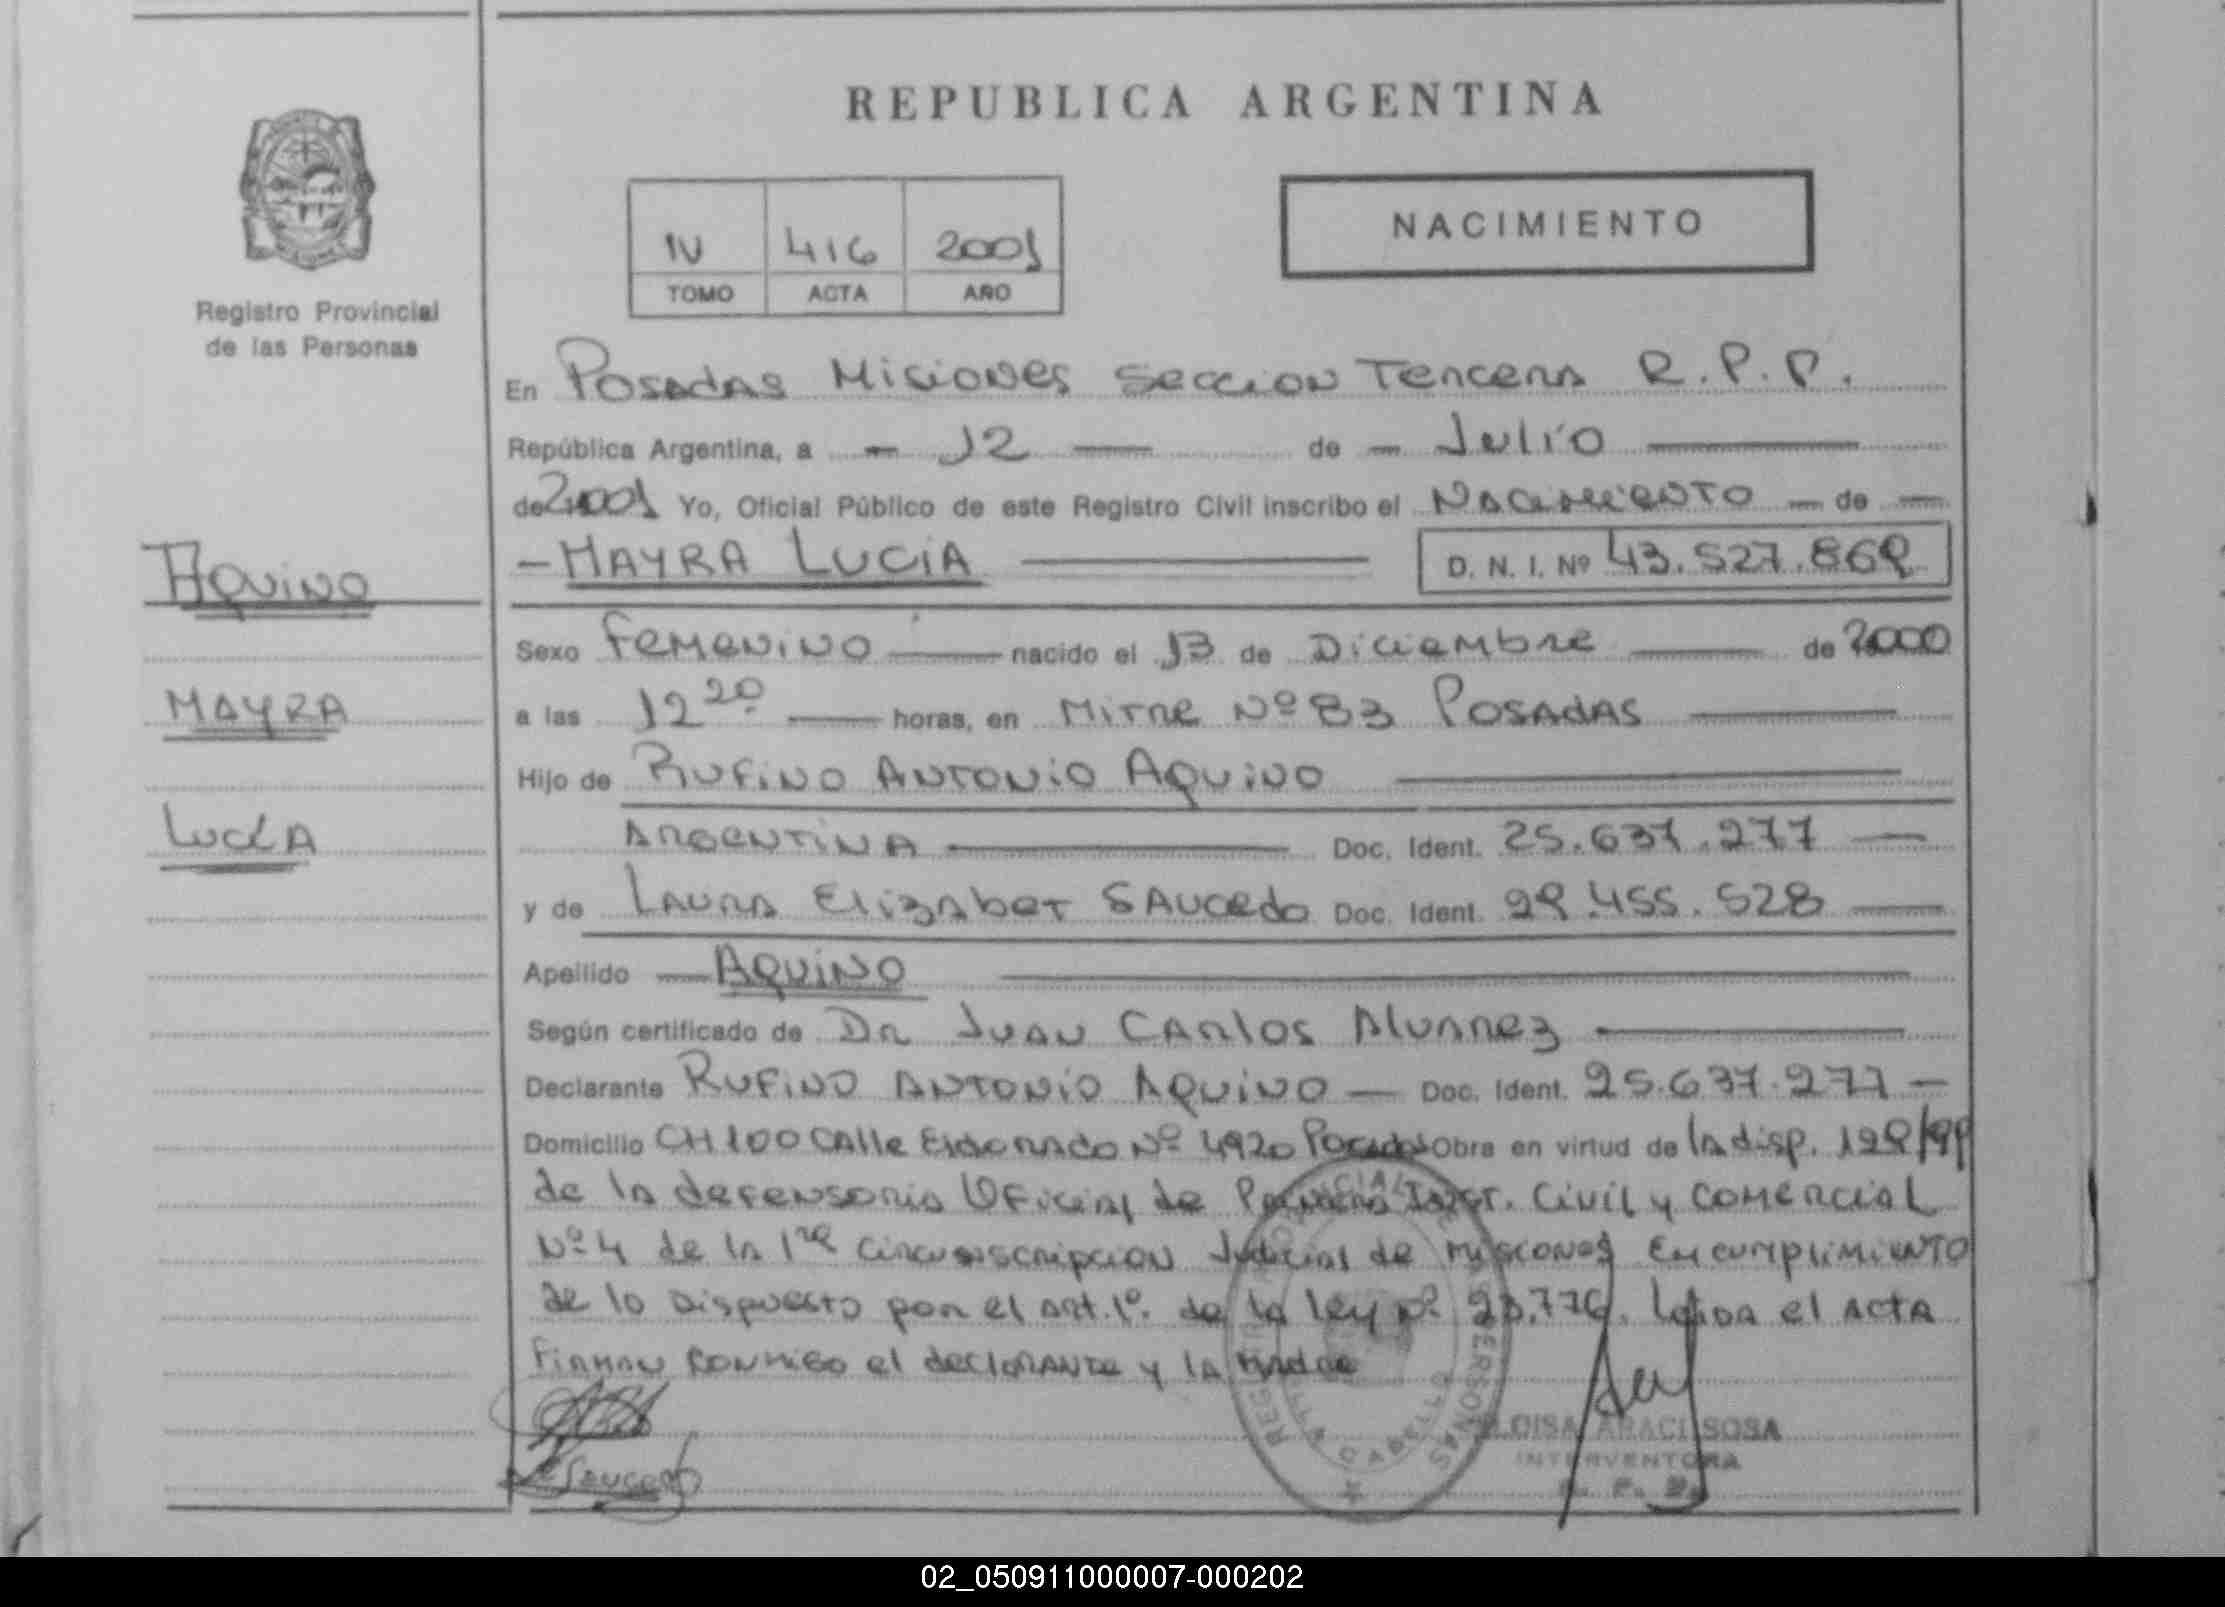 REPUBLICA ARGENTINA
NACIMIENTO
IV 416 2001
TOMO ACTA AÑO
Registro Provincial
de las Personas
En Posadas Misiones Seccion Tercera R.P.P.
República Argentina, a - 12 — de - Julio —
de 2001 Yo, Oficial Público de este Registro Civil inscribo el Nacimiento — de —
- MAYRA LUCIA — D. N. I. Nº 43.527.869
AQUINO
MAYRA
LUCIA
Sexo Femenino — nacido el 13 de Diciembre — de 2000
a las 12 20 — horas, en Mitre Nº 83 Posadas —
Hijo de Rufino Antonio Aquino —
Argentina — Doc. Ident. 25.637.277 —
y de Laura Elizabet Saucedo Doc. Ident. 29.455.528 —
Apellido — AQUINO —
Según certificado de Dr Juan Carlos Alvarez —
Declarante Rufino Antonio Aquino — Doc. Ident. 25.637.277 —
Domicilio CH 100 Calle Eldorado Nº 4920 Posadas Obra en virtud de la disp. 129/99
de la defensoria Oficial de Primera Inst. Civil y Comercial
Nº 4 de la 1ra Circunscripcion Judicial de Misiones En cumplimiento
de lo dispuesto por el art. 1º. de la ley nº 23.776. Leida el acta
Firman conmigo el declarante y la madre
Saucedo
REGISTRO PROVINCIAL DE LAS PERSONAS
CABELLO
ELOISA ARACI SOSA
INTERVENTORA
R. P. P.
02_050911000007-000202